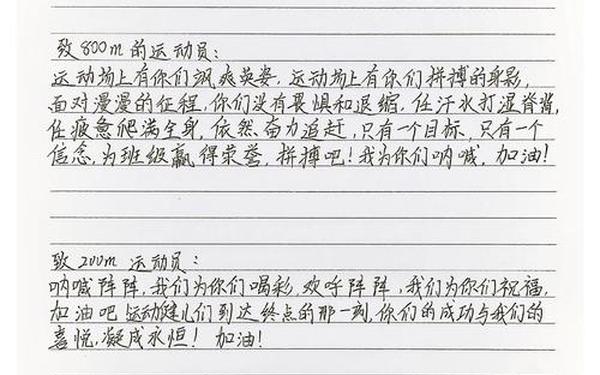 致800m的运动员:
运动场上有你们飒爽英姿,运动场上有你们拼搏的身影,
面对漫漫的征程,你们没有畏惧和退缩,任汗水打湿脊背,
任疲惫爬满全身,依然奋力追赶,只有一个目标,只有一个
信念,为班级赢得荣誉,拼搏吧!我为你们呐喊,加油!
致200m运动员:
呐喊阵阵,我们为你们喝彩,欢呼阵阵,我们为你们祝福,
加油吧运动健儿们到达终点的那一刻,你们的成功与我们的
喜悦,凝成永恒!加油!